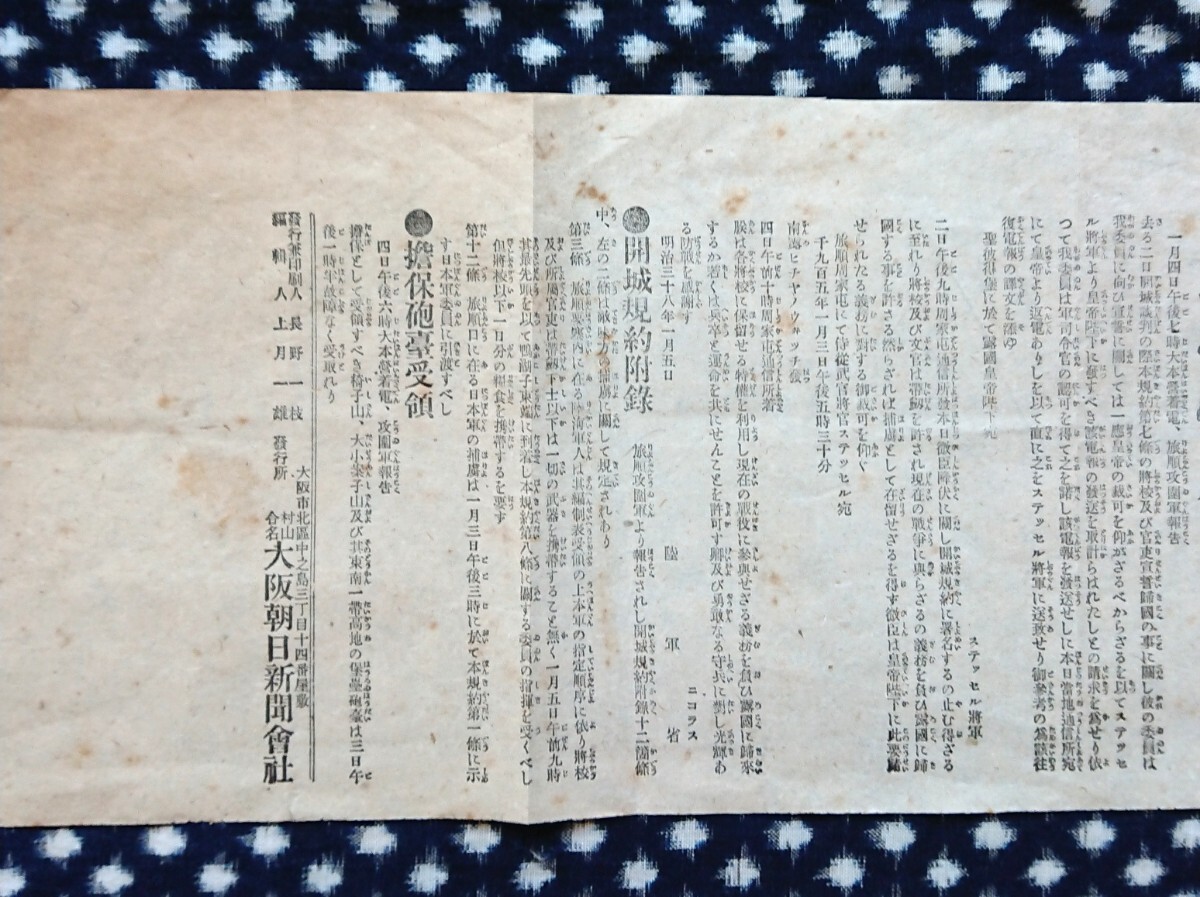 一月四日午後七時大本營着電、旅順攻圍軍報告
去る二日開城談判の際本規約第七條の將校及び官吏宣誓歸國の事に關し彼の委員は
我委員に向ひ軍醫に關しては一應皇帝の裁可を仰がざるべからざるを以てステッセ
ル將軍より皇帝陛下に奏すべき電報の發送を取計らはれたしとの請求を爲せり依
つて我委員は軍司令官の認可を得て之を諾し該電報を發送せしに本日當地通信所宛
にて皇帝より返電ありしを以て直に之をステッセル將軍に送致せり御參考の爲該往
復電報の譯文を添ゆ
聖彼得堡に於て露國皇帝陛下宛
ステッセル將軍
二日午後九時周家屯通信所發本日微臣降伏に關し開城規約に署名するの止む得ざる
に至れり將校及び文官は帶劒を許され現在の戰爭に與らざるの義務を負ひ露國に歸
國する事を許さる然らざれば捕虜として在留せざるを得ず微臣は皇帝陛下に此要歸
せられたる義務に對する御裁可を仰ぐ
旅順周家屯にて侍從武官將官ステッセル宛
千九百五年一月三日午後五時三十分
南滿ヒチヤノウヰッチ發
四日午前十時周家屯通信所着
朕は各將校に保留せる特權を利用し現在の戰役に參與せざる義務を負ひ露國に歸來
するか若くは兵卒と運命を共にせんことを許可す卿及び勇敢なる守兵に對し光輝あ
る防戰を感謝す
ニコラス
明治三十八年一月五日
陸軍省
●開城規約附錄
旅順攻圍軍より報告されし開城規約附錄十二箇條
中、左の二條は敵味方の捕虜に關して規定されあり
第三條 旅順要塞内に在る陸海軍人は其編制表受領の上本軍の指定順序に依り將校
及び所屬官吏は帶劒下士以下は一切の武器を携帶すること無く一月五日午前九時
其最先頭を以て鴨湖子東端に到着し本規約第八條に關する委員の指揮を受くべし
但將校以下一日分の糧食を携帶するを要す
第十二條 旅順口に在る日本軍の捕虜は一月三日午後三時に於て本規約第一條に示
す日本軍委員に引渡すべし
●擔保砲臺受領
四日午後六時大本營着電、攻圍軍報告
擔保として受領すべき椅子山、大小案子山及び其東南一帶高地の堡壘砲臺は三日午
後一時半故障なく受取れり
發行兼印刷人 長野一枝
編輯人 上月一雄
發行所
大阪市北區中之島三丁目十四番屋敷
村山合名大阪朝日新聞會社